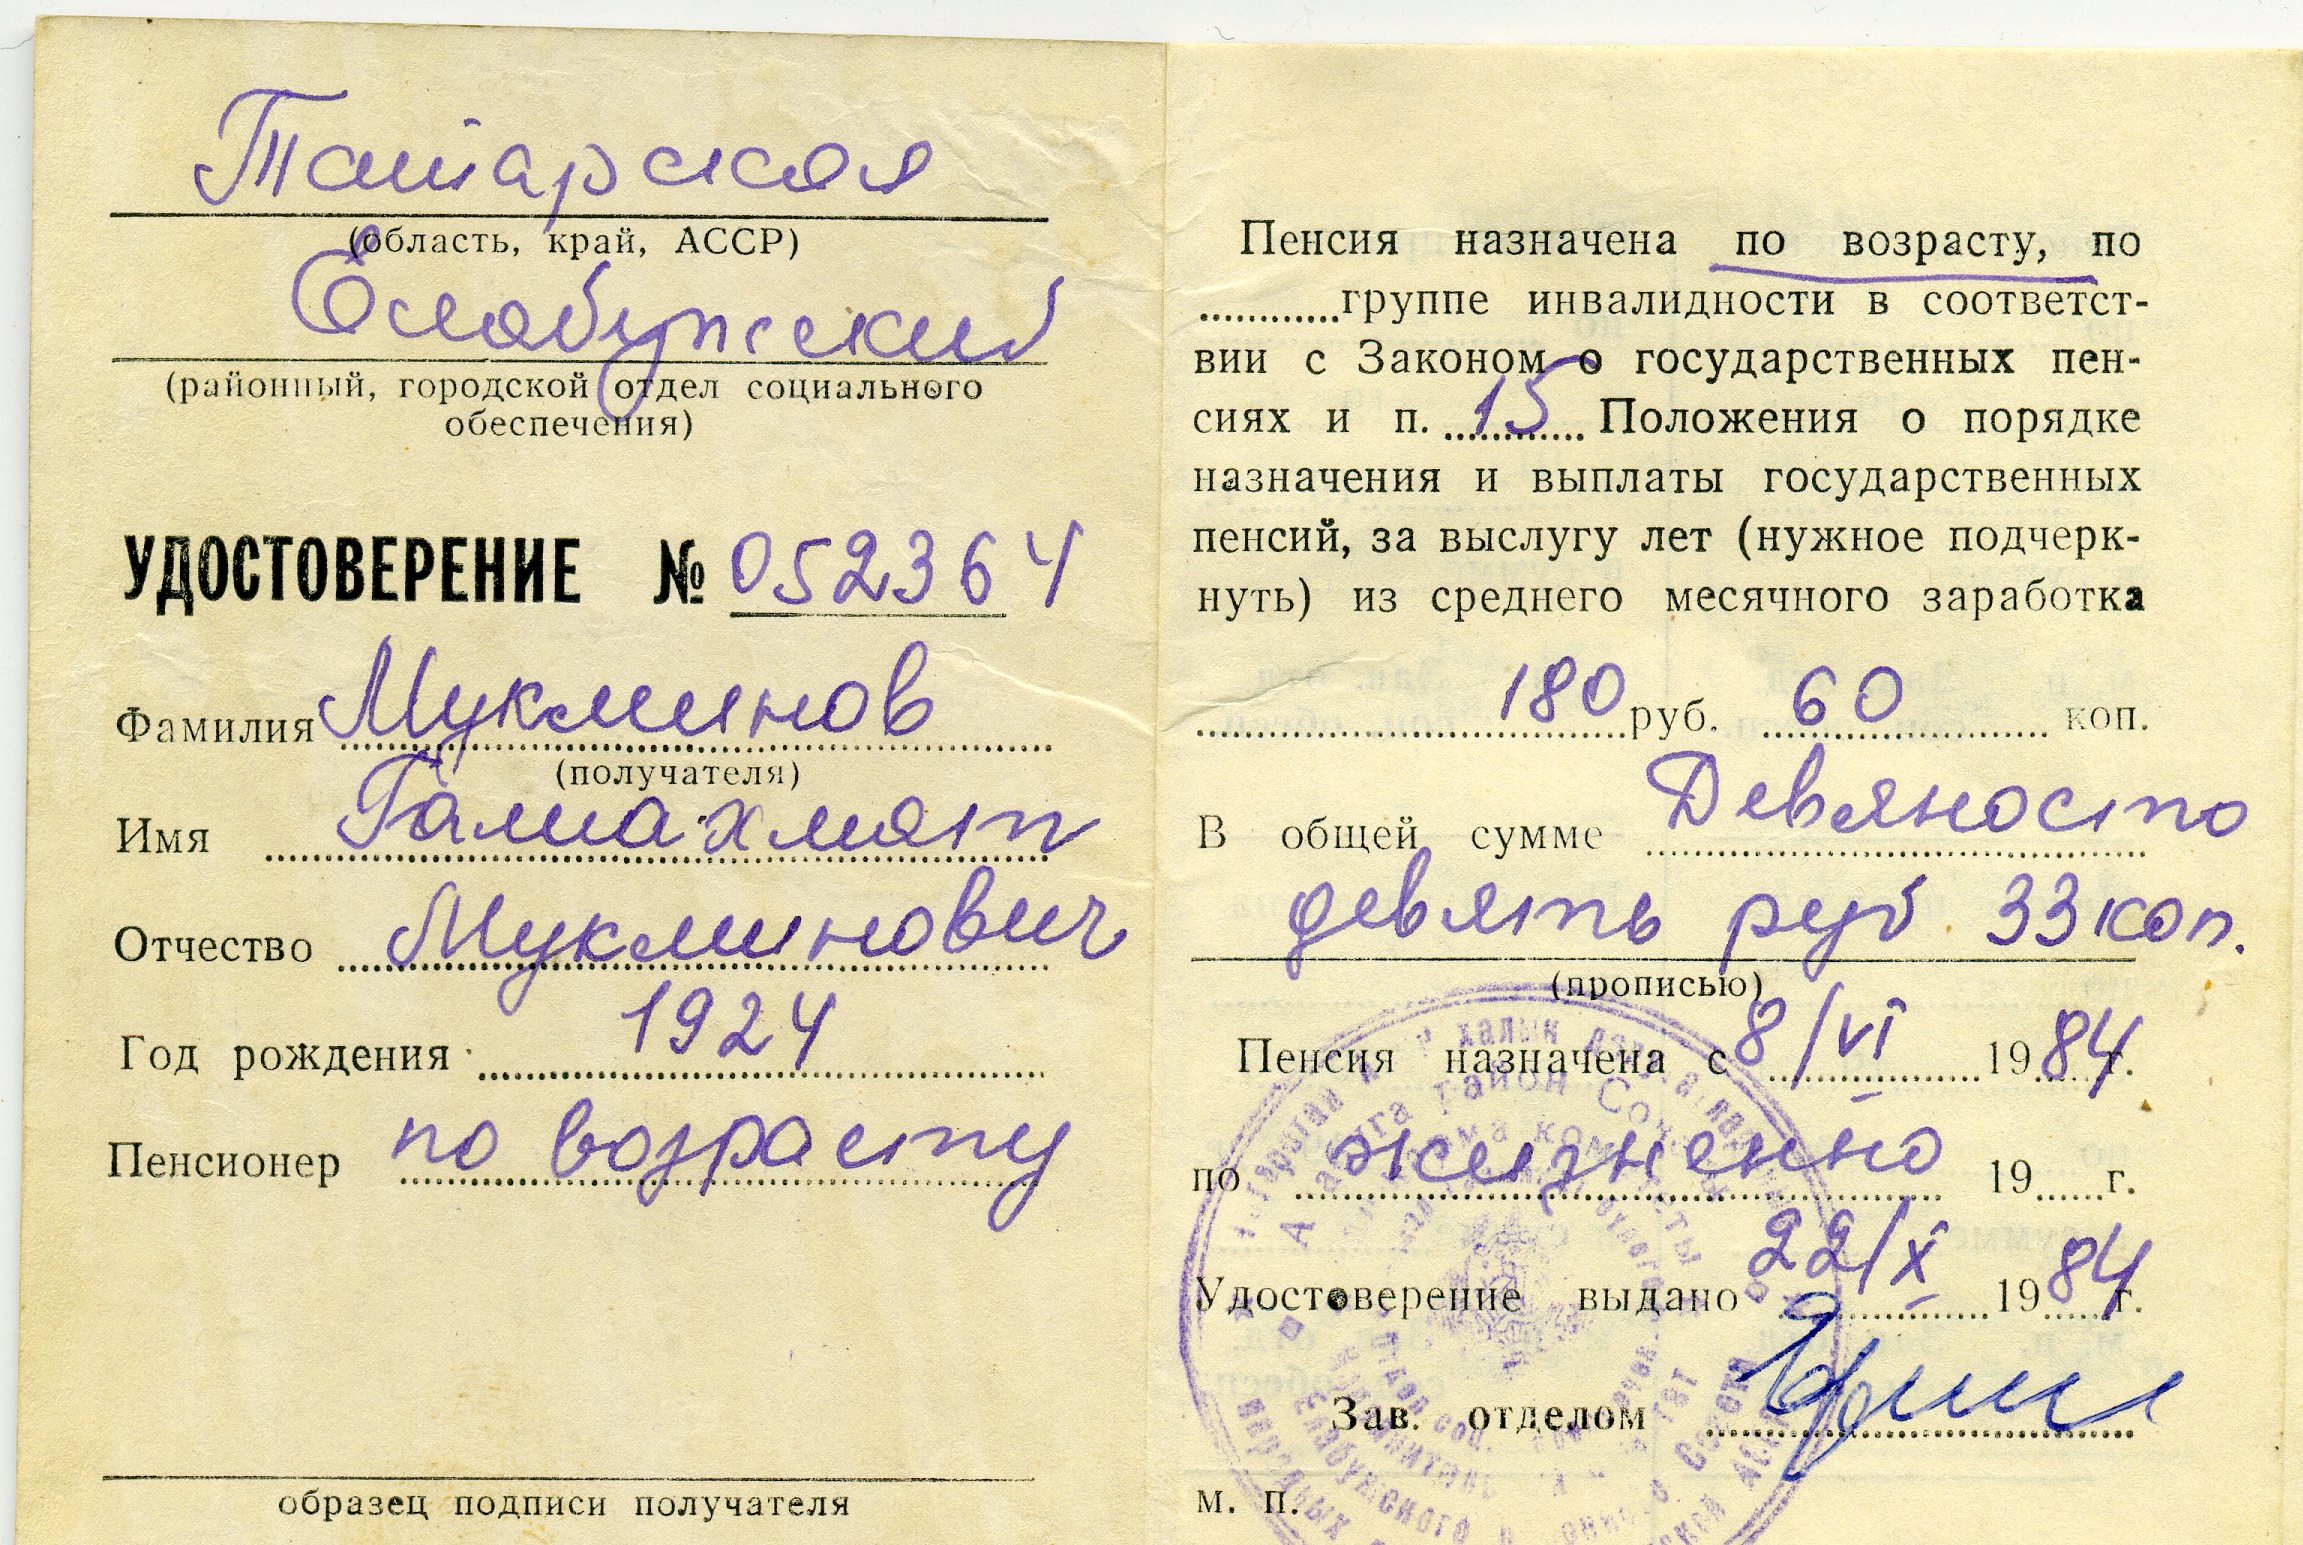 Татарская
(область, край, АССР)
Елабужский
(районный, городской отдел социального
обеспечения)
УДОСТОВЕРЕНИЕ № 052364
Фамилия Мукминов
(получателя)
Имя Гамиахмят
Отчество Мукминович
Год рождения 1924
Пенсионер по возрасту
образец подписи получателя
Пенсия назначена по возрасту, по
............группе инвалидности в соответст-
вии с Законом о государственных пен-
сиях и п. 15 Положения о порядке
назначения и выплаты государственных
пенсий, за выслугу лет (нужное подчерк-
нуть) из среднего месячного заработка
180 руб. 60 коп.
В общей сумме Девяносто
девять руб 33 коп.
(прописью)
Пенсия назначена с 8/VI 1984г.
по жизненно 19......г.
Удостоверение выдано 22/X 1984г.
Зав. отделом
м. п.